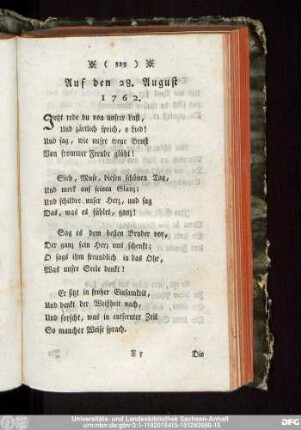 ( 329 )
Auf den 28. August
1762.
Jetzt rede du von unsrer Lust,
Und zärtlich sprich, o Lied!
Und sag, wie unsre treue Brust
Von frommer Freude glüht!
Sieh, Muse, diesen schönen Tag,
Und merk auf seinen Glanz;
Und schildre unser Herz, und sag
Das, was es fühlet, ganz!
Sag es dem besten Bruder vor,
Der ganz sein Herz uns schenkt;
O sags ihm freundlich in das Ohr,
Was unsre Seele denkt!
Er sitzt in froher Einsamkeit,
Und denkt der Weisheit nach,
Und forscht, was in entfernter Zeit
So mancher Weise sprach.
Die
Universitäts- und Landesbibliothek Sachsen-Anhalt